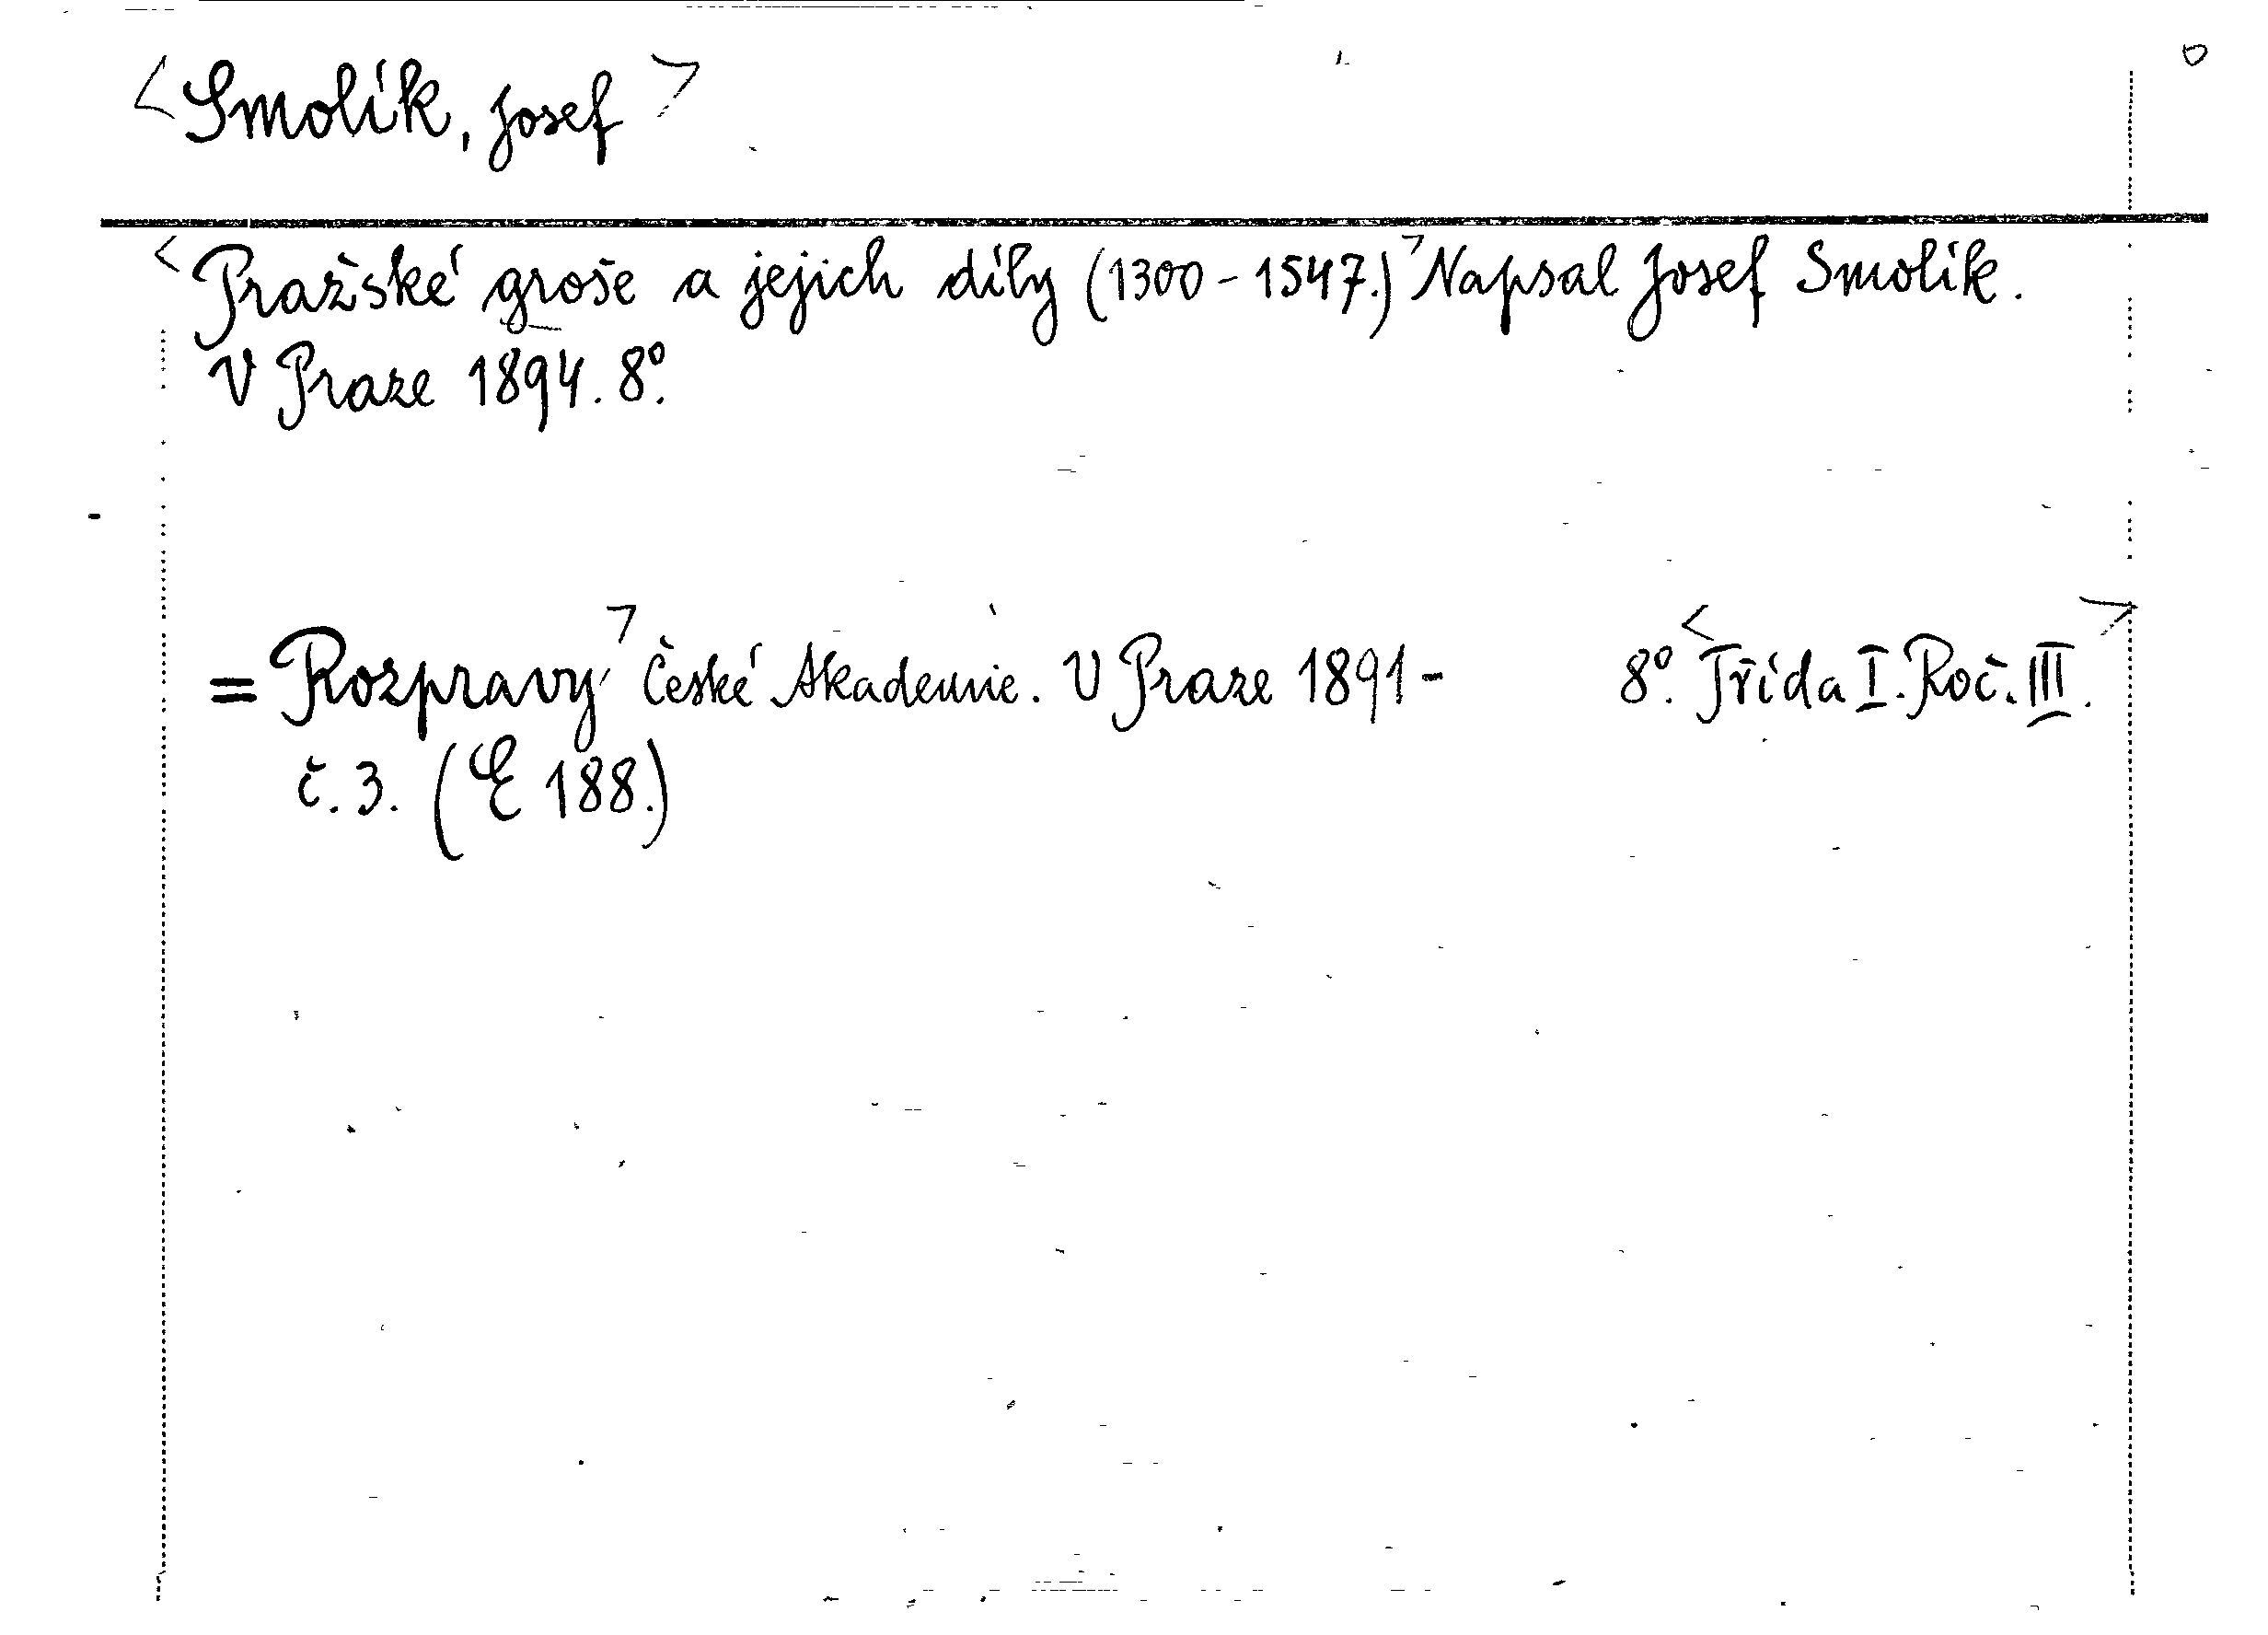 <Smolík, Josef>
<Pražské groše a jejich díly (1300-1547.)> Napsal Josef Smolík.
V Praze 1894. 8°.
= Rozpravy> České Akademie. V Praze 1891- 8°. <Třída I. Roč. III.>
č. 3. (E 188.)